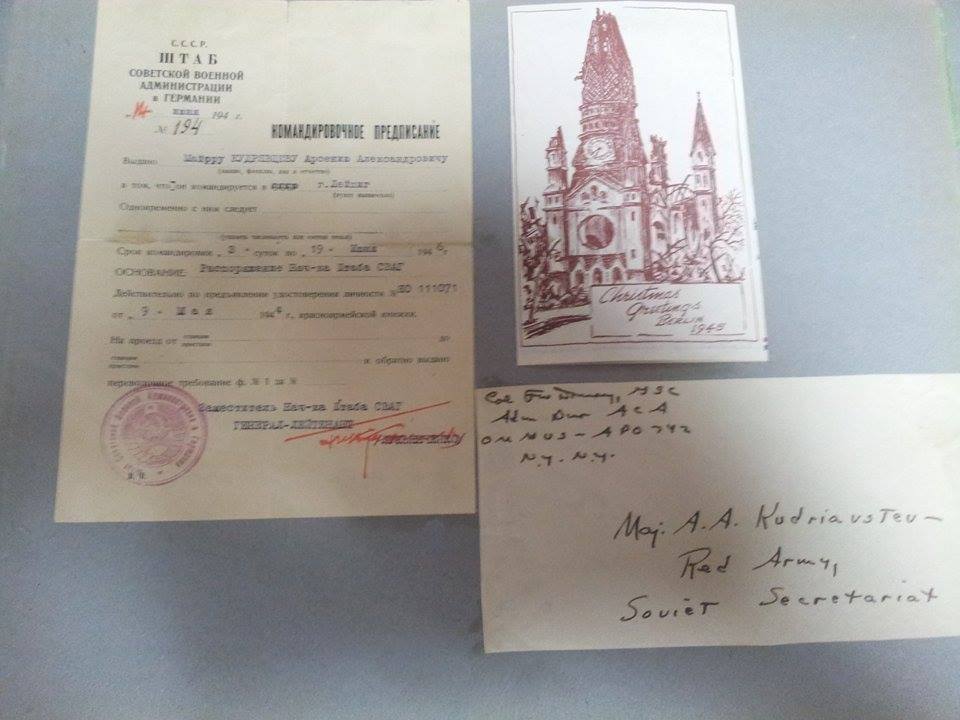 С.С.С.Р.
ШТАБ
СОВЕТСКОЙ ВОЕННОЙ
АДМИНИСТРАЦИИ
в ГЕРМАНИИ
"14" июня 194 г.
№ 194
КОМАНДИРОВОЧНОЕ ПРЕДПИСАНИЕ
Выдано Майору КУДРЯВЦЕВУ Арсению Александровичу
(звание, фамилия, имя и отчество)
в том, что он командируется в г.Лейпциг
(пункт назначения)
Одновременно с ним следует
Срок командировки " 3 " суток по " 19 " Июня 1946 г.
ОСНОВАНИЕ: Распоряжение Нач-ка Штаба СВАГ
Действительно по предъявлении удостоверения личности № 111071
от " 9 " Мая 194 г., красноармейской книжки
На проезд от станции пристани до
станции пристани и обратно выдано
перевозочное требование ф. № 1 за №
Заместитель Нач-ка Штаба СВАГ
ГЕНЕРАЛ-ЛЕЙТЕНАНТ
Christmas
Greetings
Berlin
1945
Col GSC
ACA
OMGUS - APO 742
N.Y. N.Y.
Maj. A.A. Kudriavsteu -
Red Army,
Soviet Secretariat